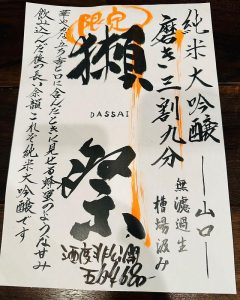 純米大吟醸
―山口―
磨き三割九分
無濾過生
槽場汲み
限定
獺祭
DASSAI
華やかな立ち香と口に含んだときに見せる蜂蜜のような甘み
飲み込んだ後の長い余韻これぞ純米大吟醸です
酒度非公開